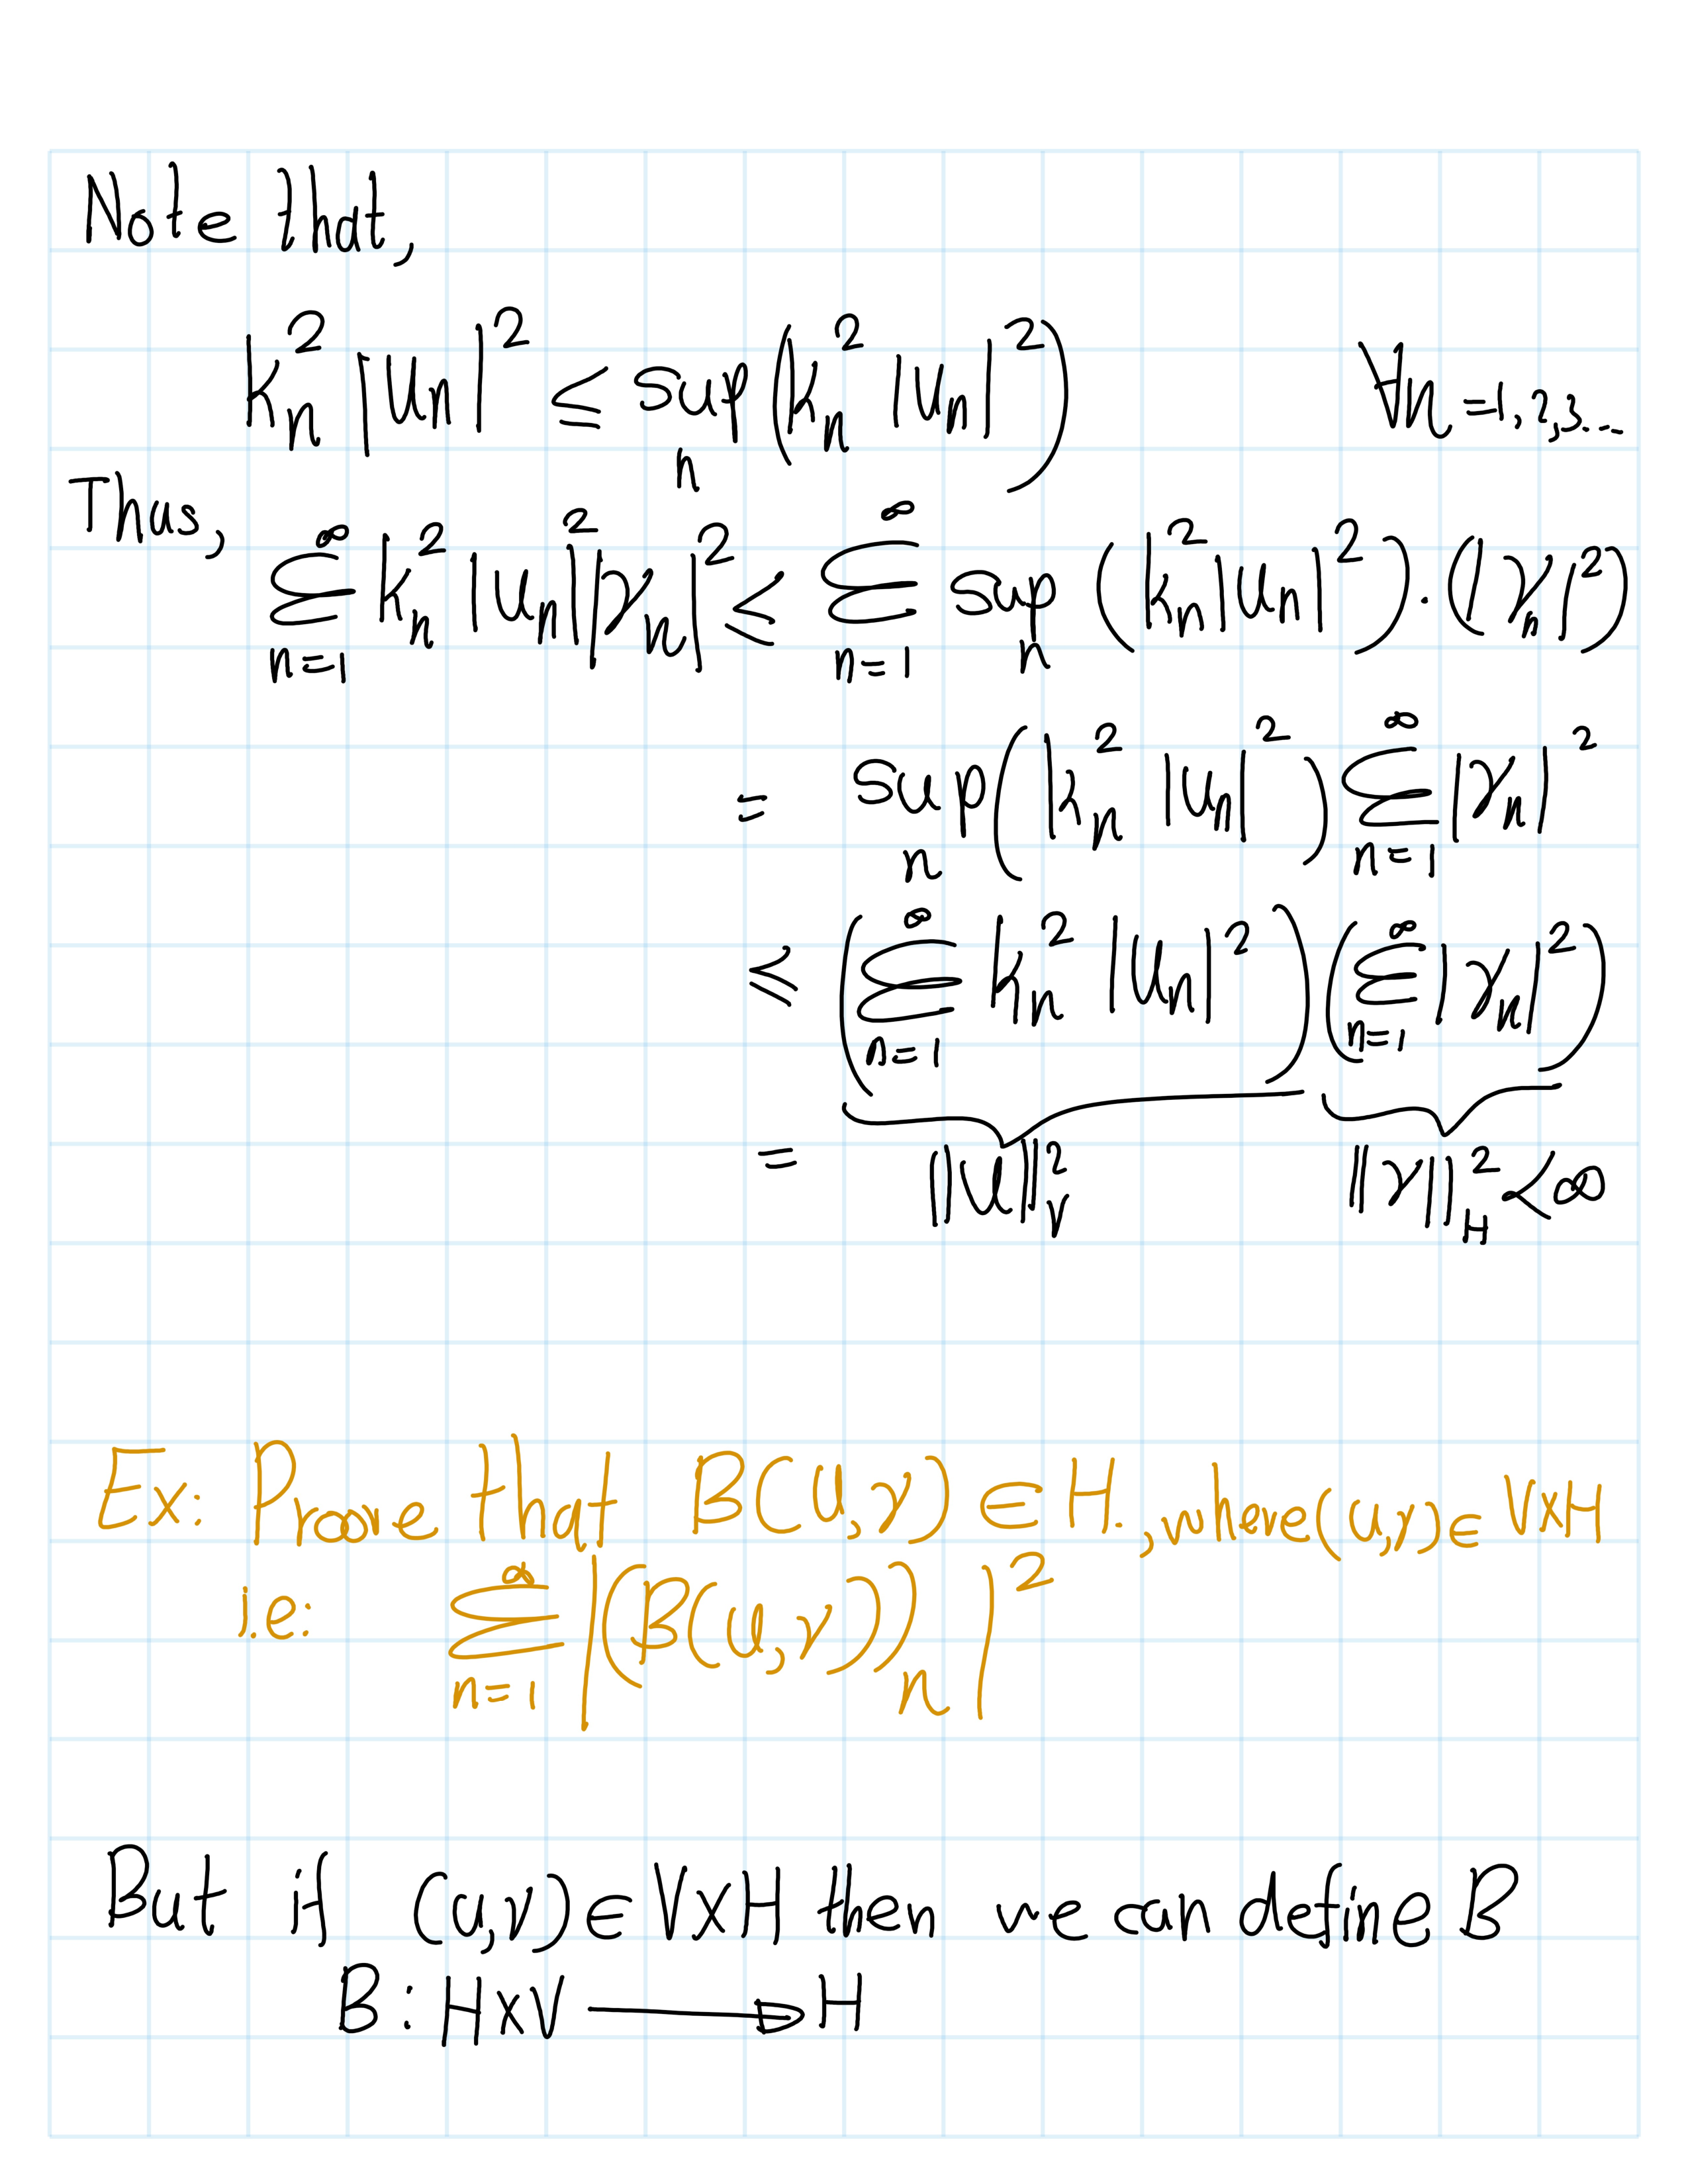 Note that,
k_n^2 |u_n|^2 ≤ sup_n (k_n^2 |u_n|^2) ∀n=1,2,3...
Thus, ∑_{n=1}^∞ k_n^2 |u_n|^2 |v_n|^2 ≤ ∑_{n=1}^∞ sup_n (k_n^2 |u_n|^2) · (|v_n|^2)
= sup_n (k_n^2 |u_n|^2) ∑_{n=1}^∞ |v_n|^2
≤ (∑_{n=1}^∞ k_n^2 |u_n|^2) (∑_{n=1}^∞ |v_n|^2)
= ||u||_V^2 ||v||_H^2 < ∞
Ex: Prove that B(u,v) ∈ H., where (u,v) ∈ V×H
i.e: ∑_{n=1}^∞ |(B(u,v))_n|^2
But if (u,v) ∈ V×H then we can define B
B : H×V → H